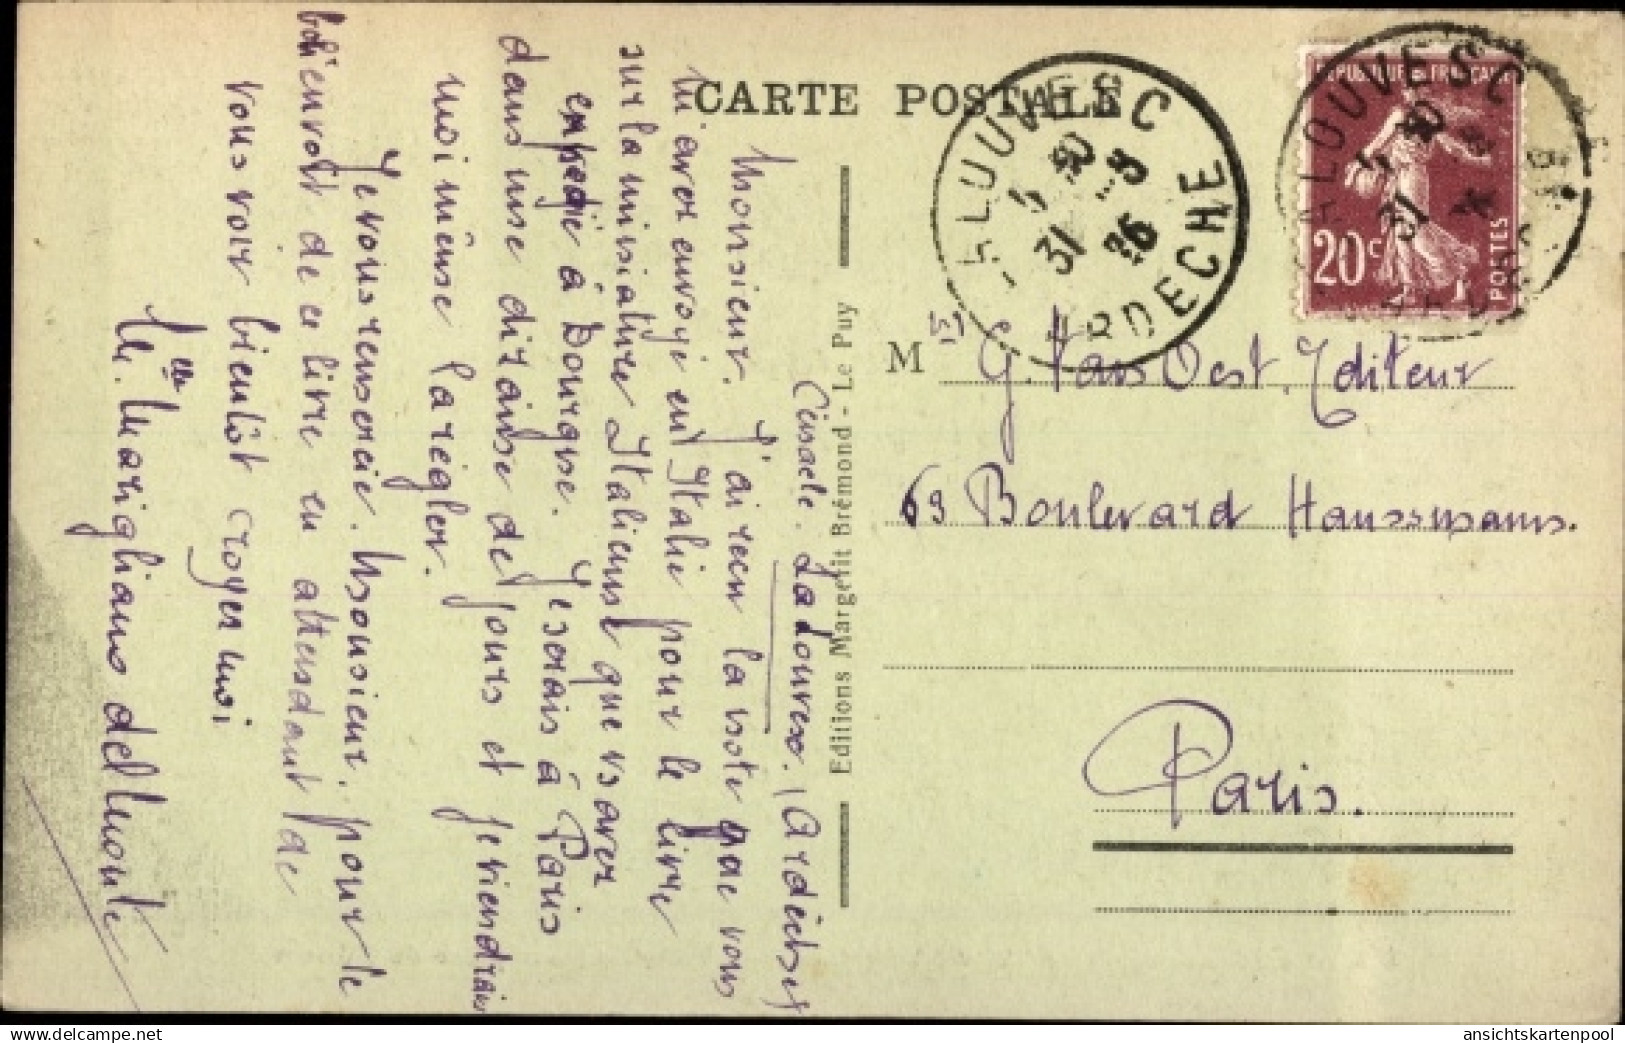 CARTE POSTALE
LALOUVESC
4 30
31 -8
26
ARDECHE
LALOUVESC
4 30
31
RÉPUBLIQUE FRANÇAISE
20c
POSTES
M r G. Van Oest. Editeur
63 Boulevard Haussmann.
Paris.
Editions Margerit Brémond - Le Puy
Lalouvesc. (Ardèche)
Monsieur. J'ai reçu la note que vous
m'avez envoyé en Italie pour le livre
sur la miniature Italienne que vs avez
expédié à Dourgne. Je serais à Paris
dans une dizaine de jours et je viendrais
moi même la régler.
Je vous remercie. Monsieur. pour le
bienvoit de ce livre en attendant de
vous voir bientôt croyez moi
M. elle Marigliano del Monte
delcampe.net
ansichtskartenpool